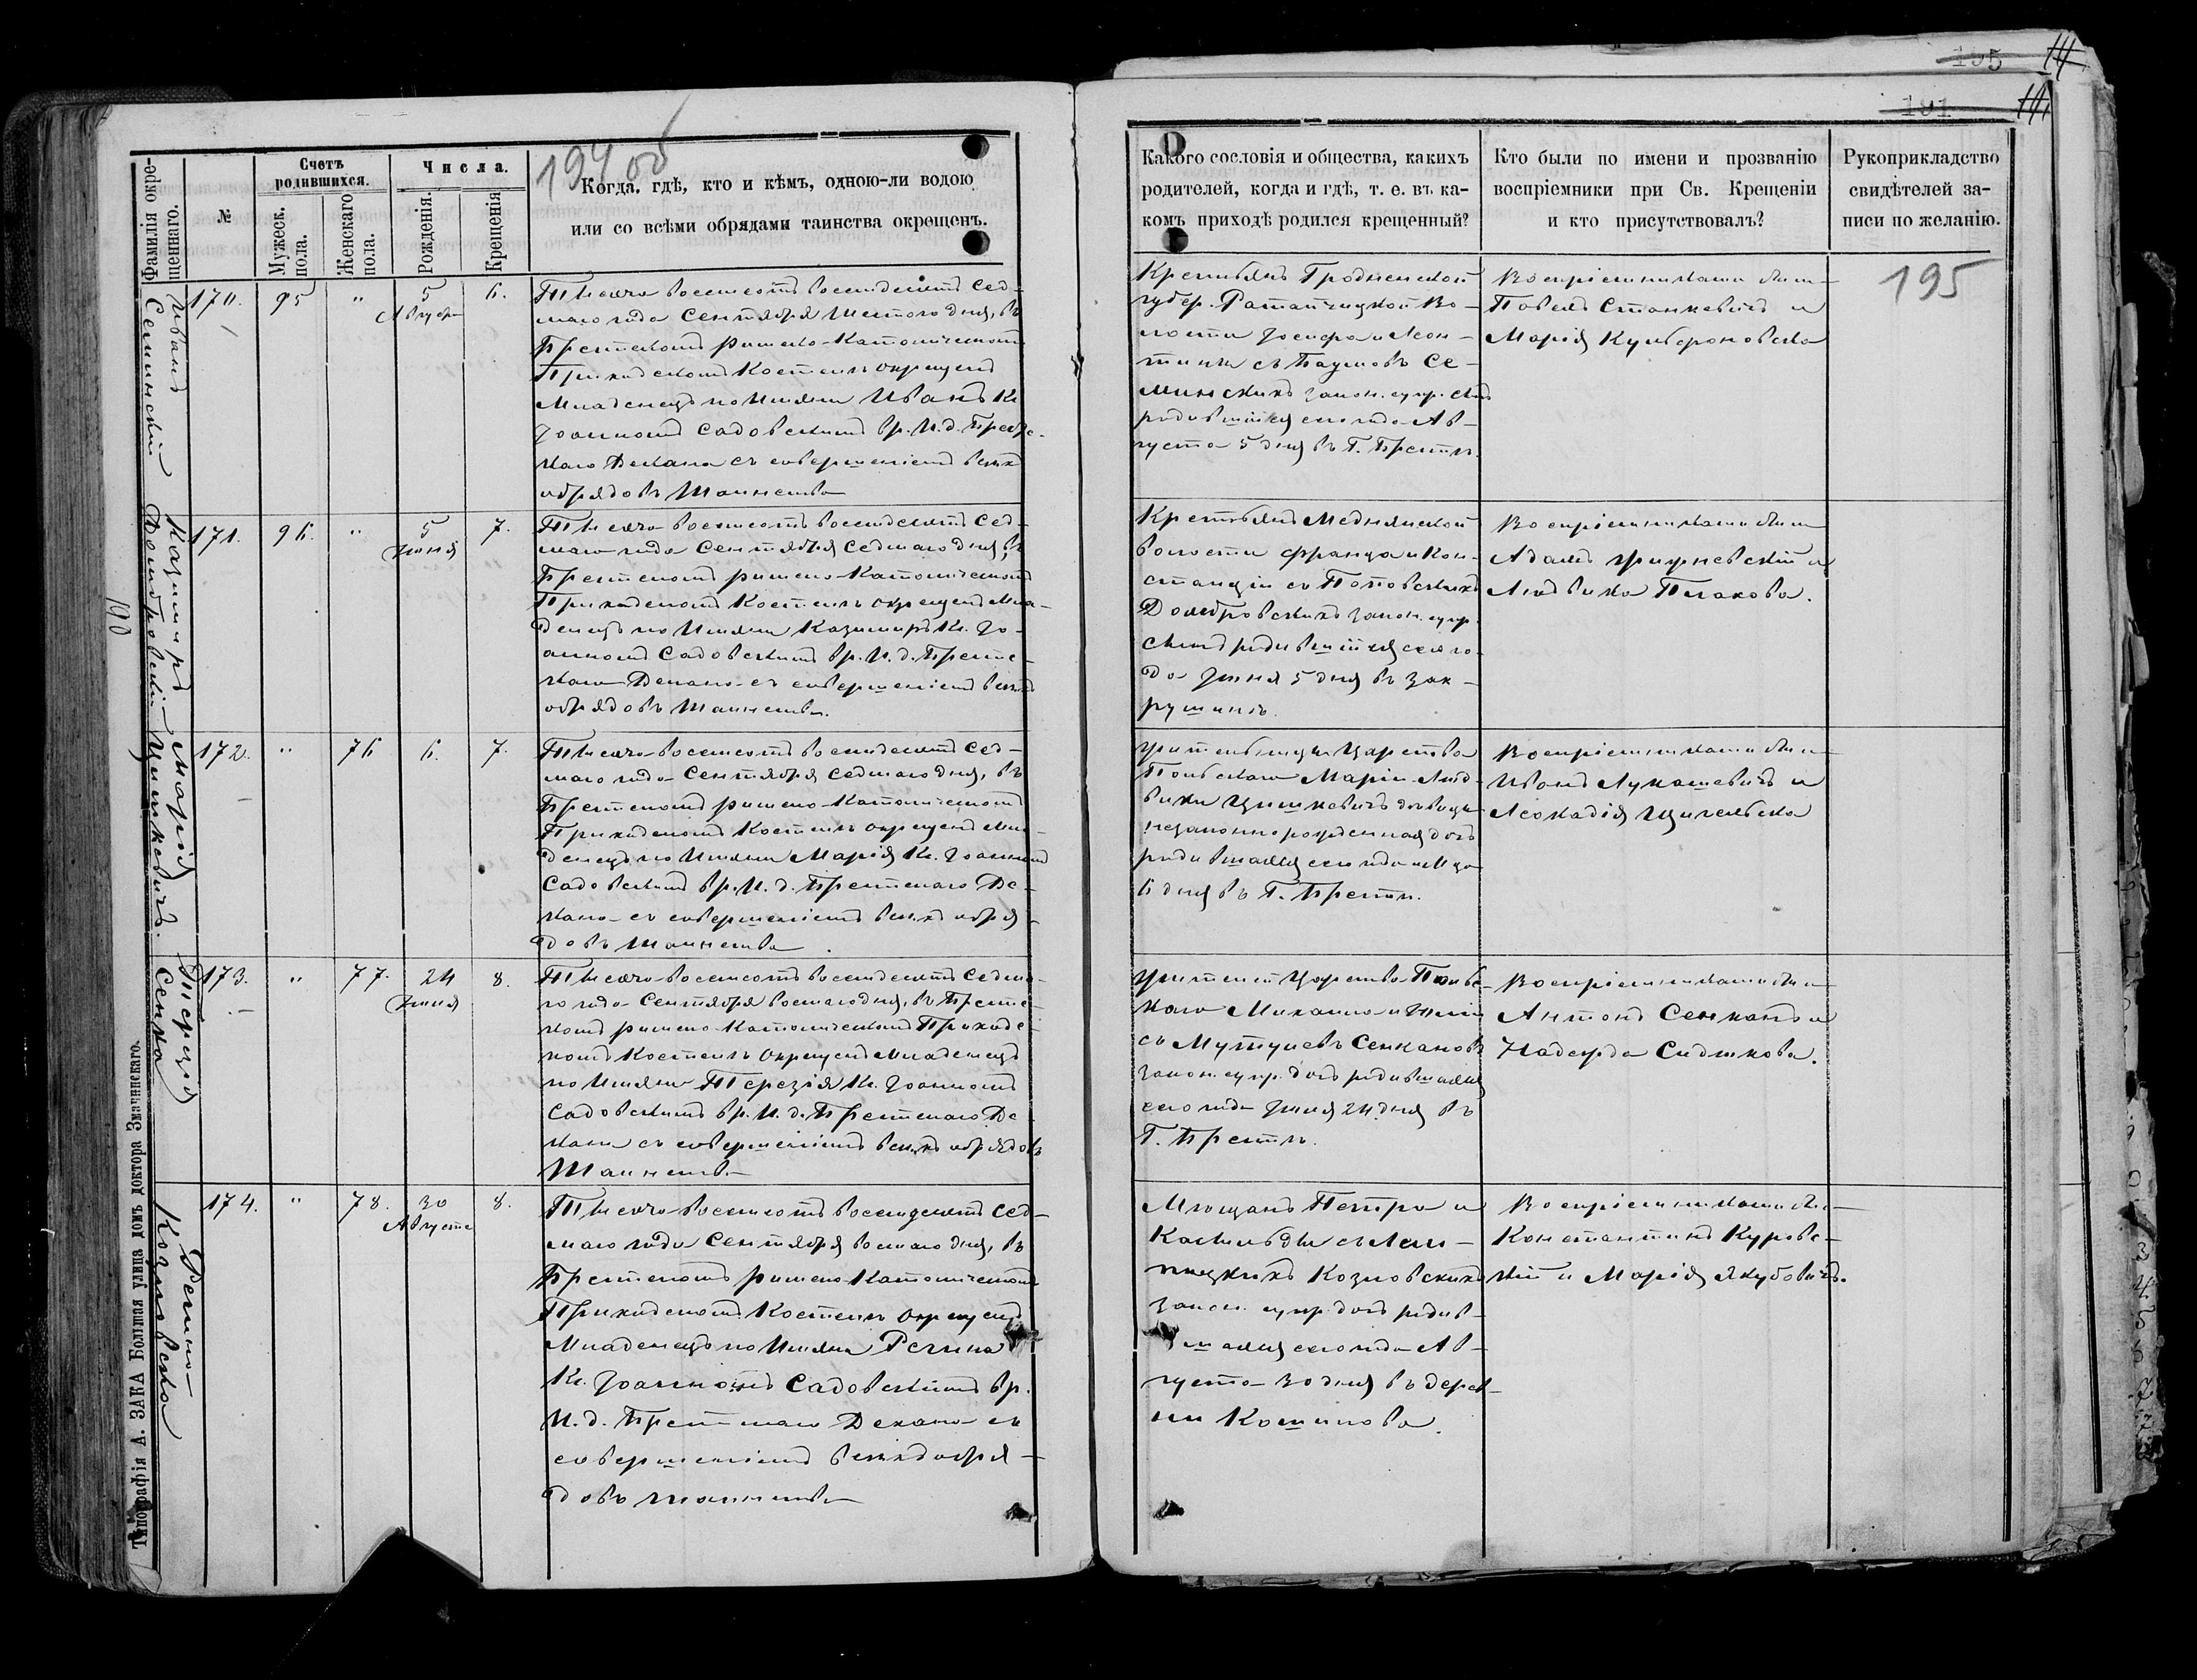 194 об
Фамилія окре-
щеннаго.
№
Счетъ
родившихся.
Мужеск.
пола.
Женскаго
пола.
Числа.
Рожденія.
Крещенія
Когда, гдѣ, кто и кѣмъ, одною-ли водою
или со всѣми обрядами таинства окрещенъ.
Иванъ
Семинскій
170.
95
"
5
Август
6.
Тысяча восемсотъ восемдесятъ сед-
маго года Сентября шестого дня, въ
Брестскомъ римско-католическомъ
Приходскомъ Костелѣ окрещенъ
Младенецъ по имяни Иванъ Кс.
Іоанномъ Садовскимъ вр. И. д. Брестс-
каго Декана съ совершеніемъ всѣхъ
обрядовъ Таинства
Казимиръ
Домбровскій
171.
96.
"
5
Іюня
7.
Тысяча восемсотъ восемдесятъ сед-
маго года Сентября седмаго дня, въ
Брестскомъ римско-католическомъ
Приходскомъ Костелѣ окрещенъ Мла-
денецъ по имяни Казимиръ Кс. Іо-
анномъ Садовскимъ вр. И. д. Брестс-
каго Декана съ совершеніемъ всѣхъ
обрядовъ Таинства.
Марія
Цишкевичъ.
172.
"
76
6.
7.
Тысяча восемсотъ восемдесятъ сед-
маго года Сентября седмаго дня, въ
Брестскомъ римско-католическомъ
Приходскомъ Костелѣ окрещенъ Мла-
денецъ по имяни Марія Кс. Іоанномъ
Садовскимъ вр. И. д. Брестскаго Де-
кана съ совершеніемъ всѣхъ обря-
довъ Таинства.
Терезія
Сенка
173.
"
77.
24
Іюня
8.
Тысяча восемсотъ восемдесятъ седма-
го года Сентября восмаго дня, въ Брестс-
комъ римско-католическомъ Приходс-
комъ Костелѣ окрещенъ Младенецъ
по имяни Терезія Кс. Іоанномъ
Садовскимъ вр. И. д. Брестскаго Де-
кана съ совершеніемъ всѣхъ обрядовъ
Таинства
Регина
Козловска
174.
"
78.
30
Августа
8.
Тысяча восемсотъ восемдесятъ сед-
маго года Сентября восмаго дня, въ
Брестскомъ римско-католическомъ
Приходскомъ Костелѣ окрещенъ
Младенецъ по имяни Регина
Кс. Іоанномъ Садовскимъ вр.
И. д. Брестскаго Декана съ
совершеніемъ всѣхъ обря-
довъ таинства
190
Типографія А. ЗАКА Большая улица домъ доктора Змачинскаго.
195
191
Какого сословія и общества, какихъ
родителей, когда и гдѣ, т. е. въ ка-
комъ приходѣ родился крещенный?
Кто были по имени и прозванію
воспріемники при Св. Крещеніи
и кто присутствовалъ?
Рукоприкладство
свидѣтелей за-
писи по желанію.
195
Крестьянъ Гродненской
губер. Ратайчицкой Во-
лости Іосифа и Леон-
тины съ Се-
минскихъ закон. супр. сынъ
родившійся сего года Ав-
густа 5 дня въ Г. Брестѣ.
Воспріемниками были
Павелъ Станкевичъ и
Марія
Крестьянъ Меднянской
волости Франца и Кон-
станціи съ Поповскихъ
Домбровскихъ закон. супр.
сынъ родившійся сего го-
да Іюня 5 дня въ Зак-
Воспріемниками были
Адамъ и
Людвика
Жительницы Царства
Польскаго Маріи Люд-
вики Цишкевичъ дѣвицы
незаконнорожденная дочь
родившаяся сего года и М-ца
6 дня въ Г. Брестѣ.
Воспріемниками были
Иванъ Лукашевичъ и
Леокадія
Жителей Царства Польс-
каго Михаила и Юліи
съ Сенкановъ
закон. супр. дочь родившаяся
сего года Іюня 24 дня въ
Г. Брестѣ.
Воспріемниками были
Антонъ и
Надежда
Мѣщанъ Петра и
съ
Козловскихъ
закон. супр. дочь родив-
шаяся сего года Ав-
густа 30 дня въ дерев-
ни
Воспріемниками были
Константинъ Куровс-
кій и Марія Якубовичъ.